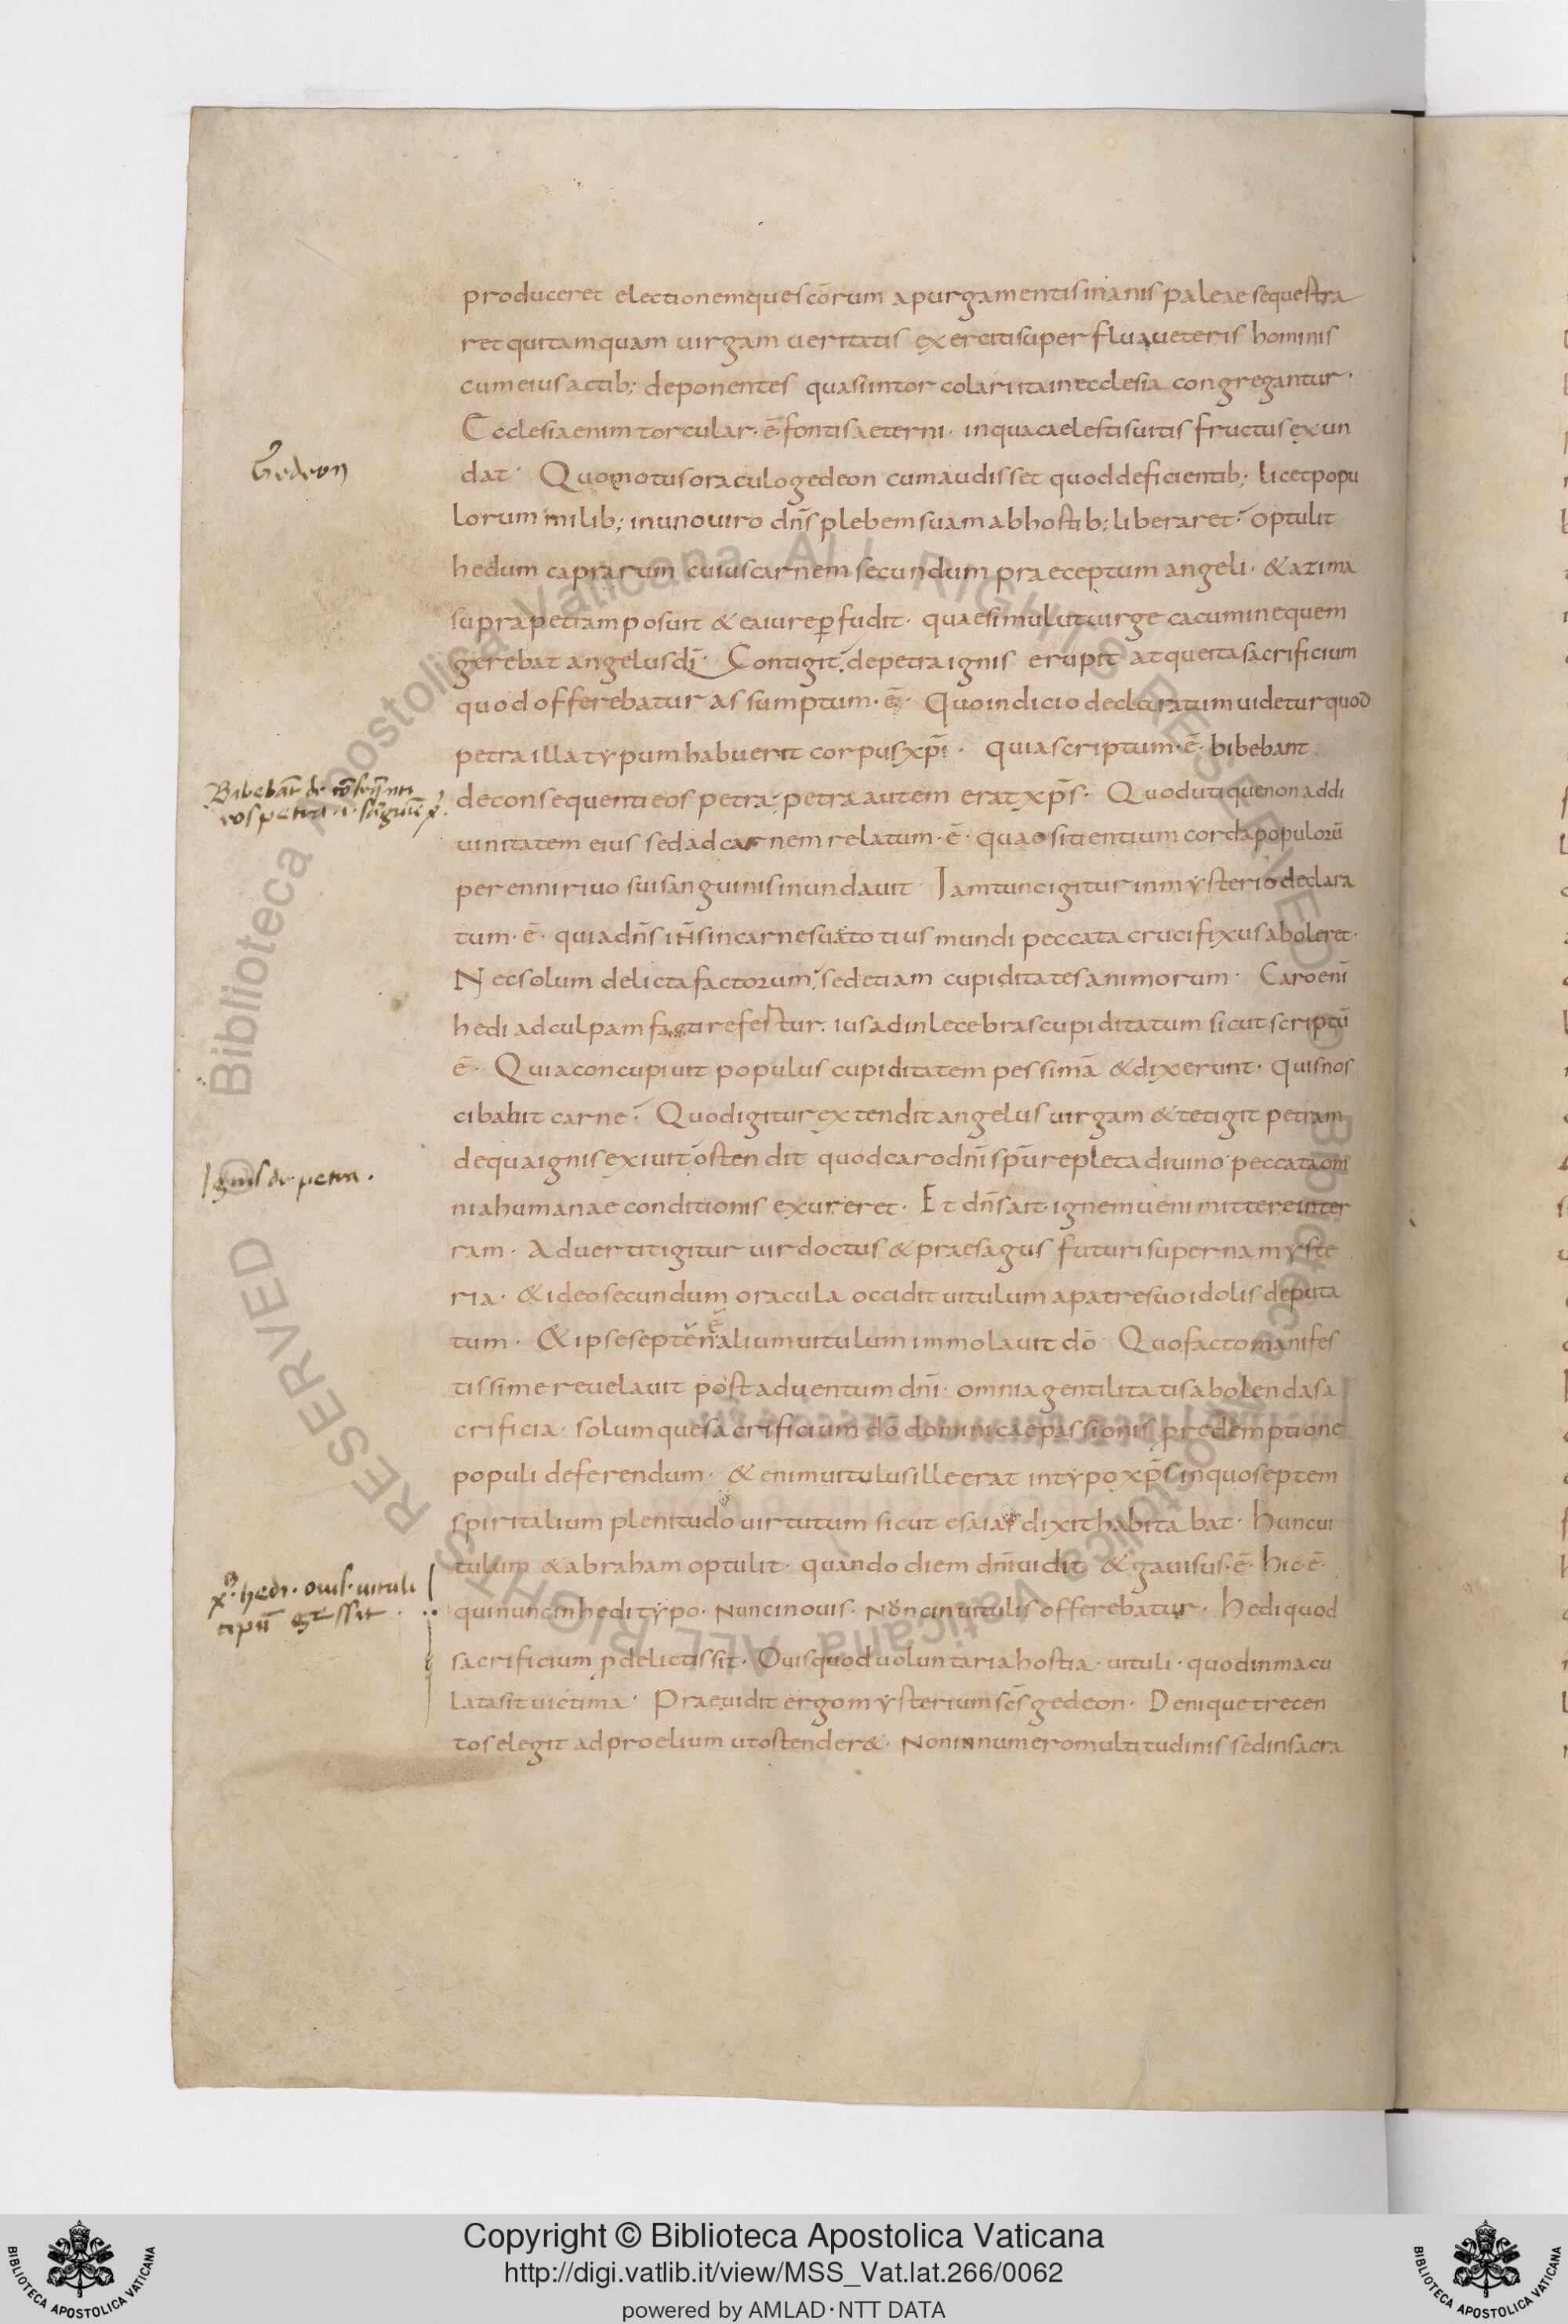 produceret electionemque scōrum apurgamentis inanis paleae sequestra
ret qui tamquam uirgam ueritatis exerciti superflua ueteris hominis
cum eius actib; deponentes quasi intorcolari ita in ecclesia congregantur·
Ecclesia enim torcular·ē·fontis aeterni· in qua caelestis uitis fructus exun
dat· Quo motus oraculo gedeon cum audisset quod deficientib; licet popu
Gedeon
lorum milib; in uno uiro dn̄s plebem suam ab hostib; liberaret· optulit
hedum caprarum cuius carnem secundum praeceptum angeli· & azima
supra petram posuit & ea iure p̱fudit· quae simul ut uirge cacumine quem
gerebat angelus dī· Contigit· de petra ignis erupit atque ita sacrificium
quod offerebatur assumptum·ē· Quo indicio declaratum uidetur quod
petra illa typum habuerit corpus xp̄i· quia scriptum·ē· bibebant
de consequenti eos petra· petra autem erat xp̄s· Quod utique non ad di
Bibebāt de cōseq̄nti
eos petra·
uinitatem eius sed ad carnem relatum·ē· quae sitientium corda populorū
perenni riuo sui sanguinis inundauit· Iam tunc igitur in mysterio declara
tum·ē· quia dn̄s ih̄s in carne sua totius mundi peccata crucifixus aboleret·
Nec solum delicta factorum· sed etiam cupiditates animorum· Caro enī
hedi ad culpam facti refertur· ius ad inlecebras cupiditatum sicut scriptū
ē· Quia concupiuit populus cupiditatem pessimā & dixerunt· quis nos
cibabit carne· Quod igitur extendit angelus uirgam & tetigit petram
de qua ignis exiuit ostendit quod caro dn̄i sp̄u repleta diuino peccata om
Ignis de petra·
nia humanae conditionis exureret· Et dn̄s ait· ignem ueni mittere inter
ram· Aduertit igitur uir doctus & praesagus futuri superna myste
ria· & ideo secundum oracula occidit uitulum a patre suo idolis deputa
tum· & ipse septennalium uitulum immolauit dō· Quo facto manifes
tissime reuelauit post aduentum dn̄i· omnia gentilitatis abolenda sa
crificia· solumque sacrificium dō dominicae passionis p̱ redemptione
populi deferendum· & enim uitulus ille erat in typo xp̄i in quo septem
spiritalium plenitudo uirtutum sicut esaias dixit habitabat· Hunc ui
tulum & abraham optulit· quando diem dn̄i uidit & gauisus·ē· hic·ē·
hedi· ouis· uituli
tipū gessit·
qui nunc in hedi typo· Nunc in ouis· Nunc in uitulis offerebatur· Hedi quod
sacrificium p̱ delictis sit· Ouis quod uoluntaria hostia· uituli· quod inmacu
lata sit uictima· Praeuidit ergo mysterium scs̄ gedeon· Denique trecen
tos elegit ad proelium ut ostender&· Non in numero multitudinis sed in sacra
© Biblioteca Apostolica Vaticana ALL RIGHTS RESERVED
Copyright © Biblioteca Apostolica Vaticana
http://digi.vatlib.it/view/MSS_Vat.lat.266/0062
powered by AMLAD·NTT DATA
BIBLIOTECA APOSTOLICA VATICANA
BIBLIOTECA APOSTOLICA VATICANA